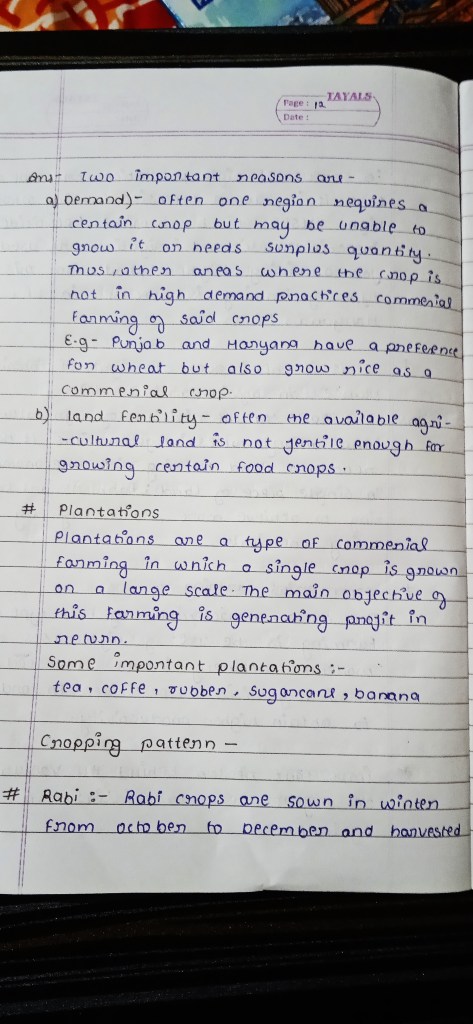 TAYALS
Page : 12
Date :
Ans- Two important reasons are -
a) Demand)- often one region requires a
certain crop but may be unable to
grow it or needs surplus quantity.
Thus, other areas where the crop is
not in high demand practices commerial
farming of said crops
E.g- Punjab and Haryana have a preference
for wheat but also grow rice as a
commerial crop.
b) land fertility - often the available agri-
-cultural land is not fertile enough for
growing certain food crops.
# Plantations
Plantations are a type of commerial
farming in which a single crop is grown
on a large scale. The main objective of
this farming is generating profit in
return.
Some important plantations :-
tea, coffe, rubber, sugarcane, banana
Cropping pattern -
# Rabi :- Rabi crops are sown in winter
from october to December and harvested